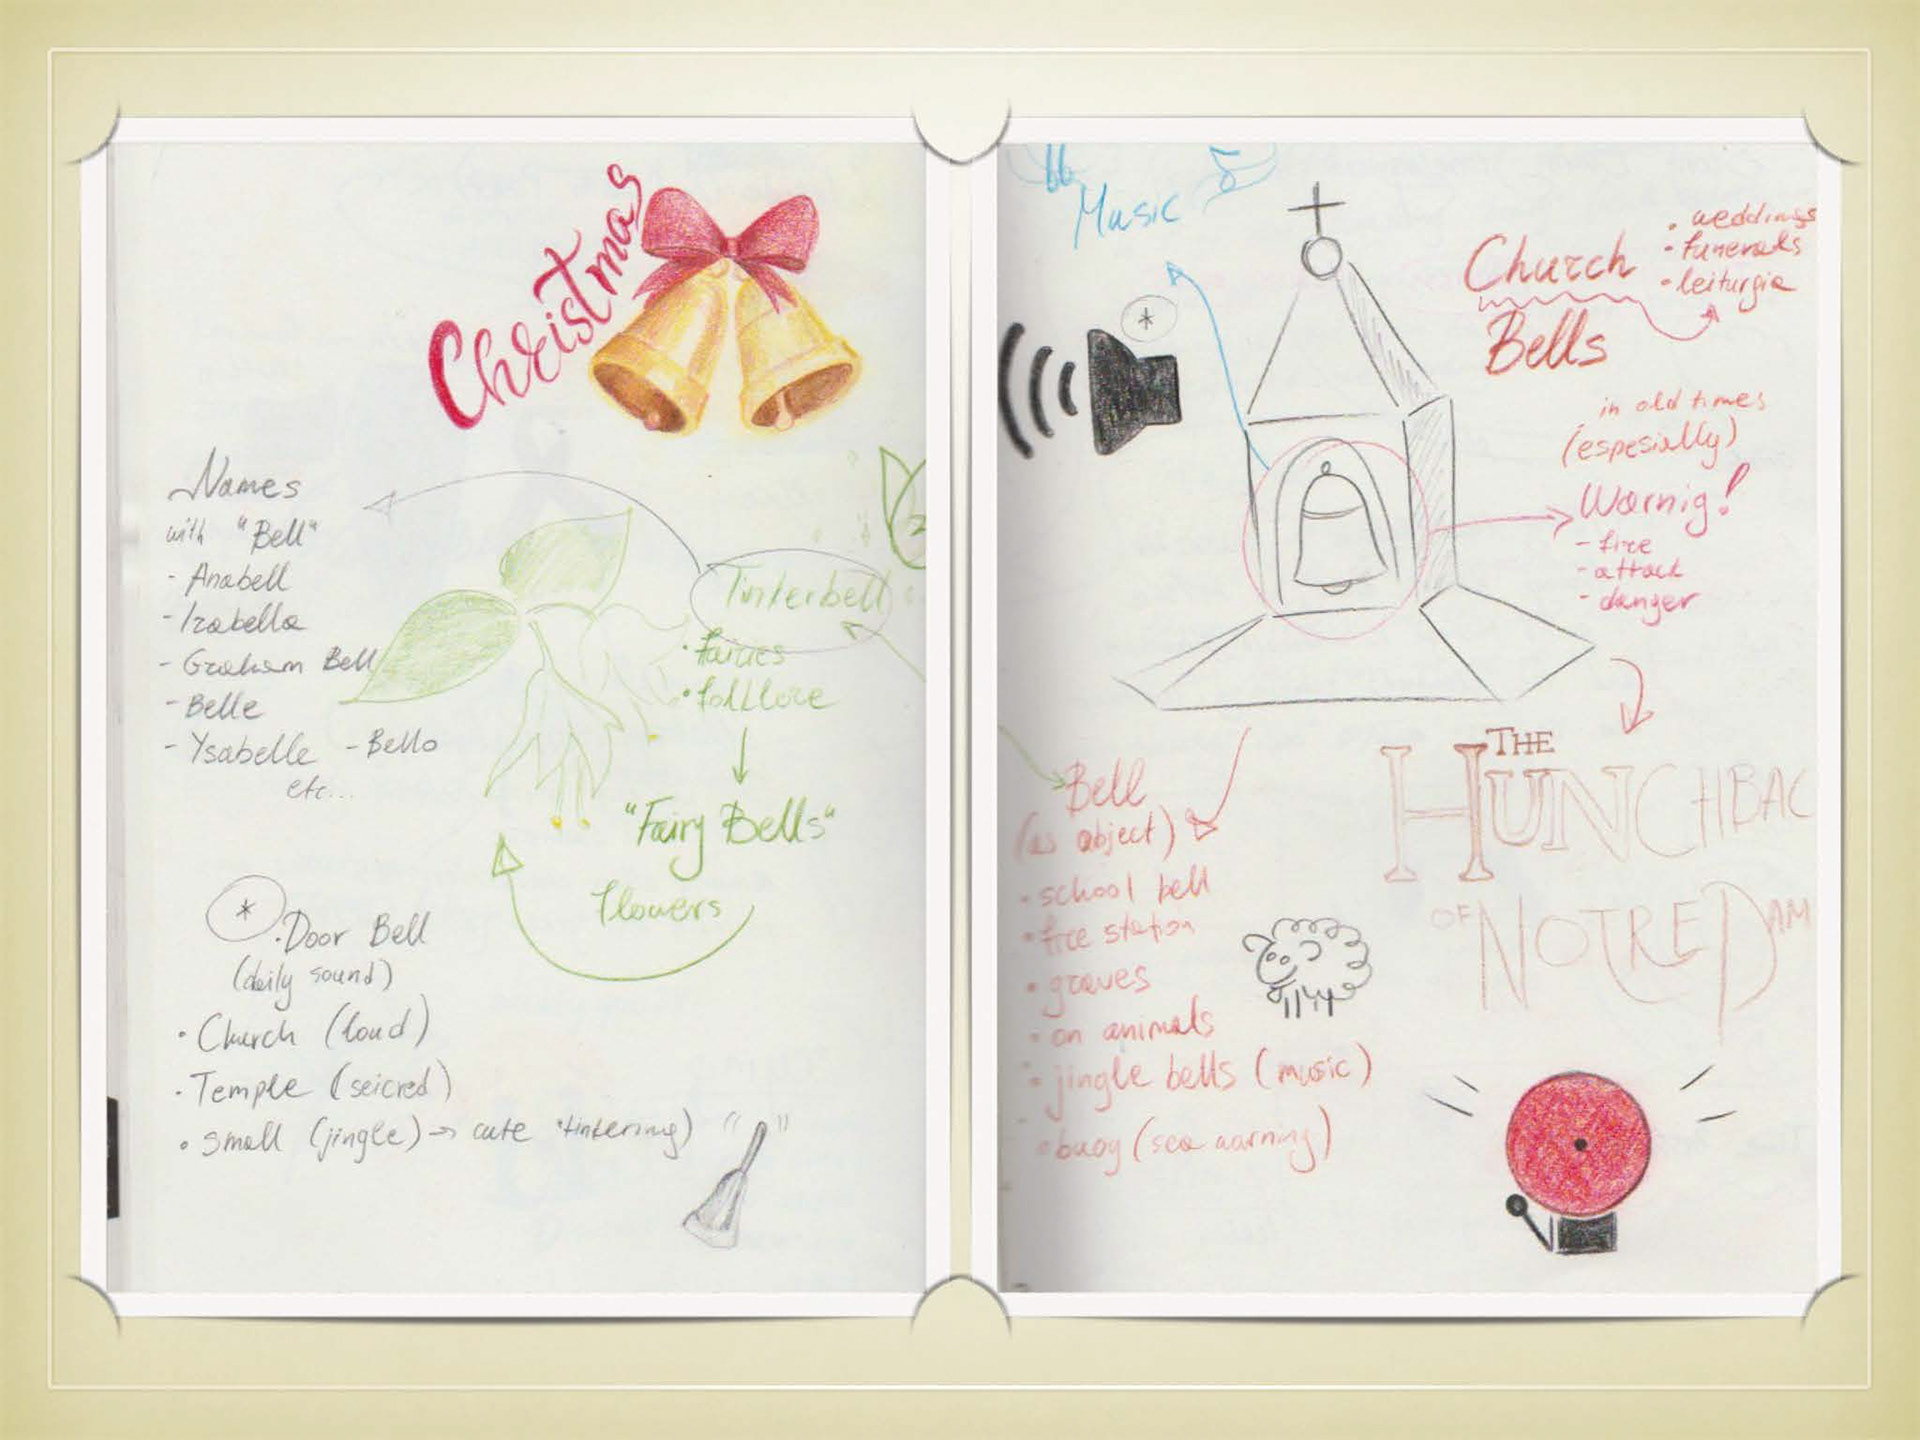 Christmas
Names
with "Bell"
- Anabell
- Izabella
- Graham Bell
- Belle
- Ysabelle - Bello
etc...
Tinkerbell
• fairies
• folklore
"Fairy Bells"
flowers
* • Door Bell
(daily sound)
• Church (loud)
• Temple (seicred)
• small (jingle) → cute tinkering)
Music
*
Church
Bells
• weddings
• funerals
• leiturgie
in old times
(espesially)
Warnig!
- fire
- attack
- danger
THE
HUNCHBAC
OF NOTRE DAM
Bell
(as object)
• school bell
• fire station
• graves
• on animals
• jingle bells (music)
• buoy (sea warning)